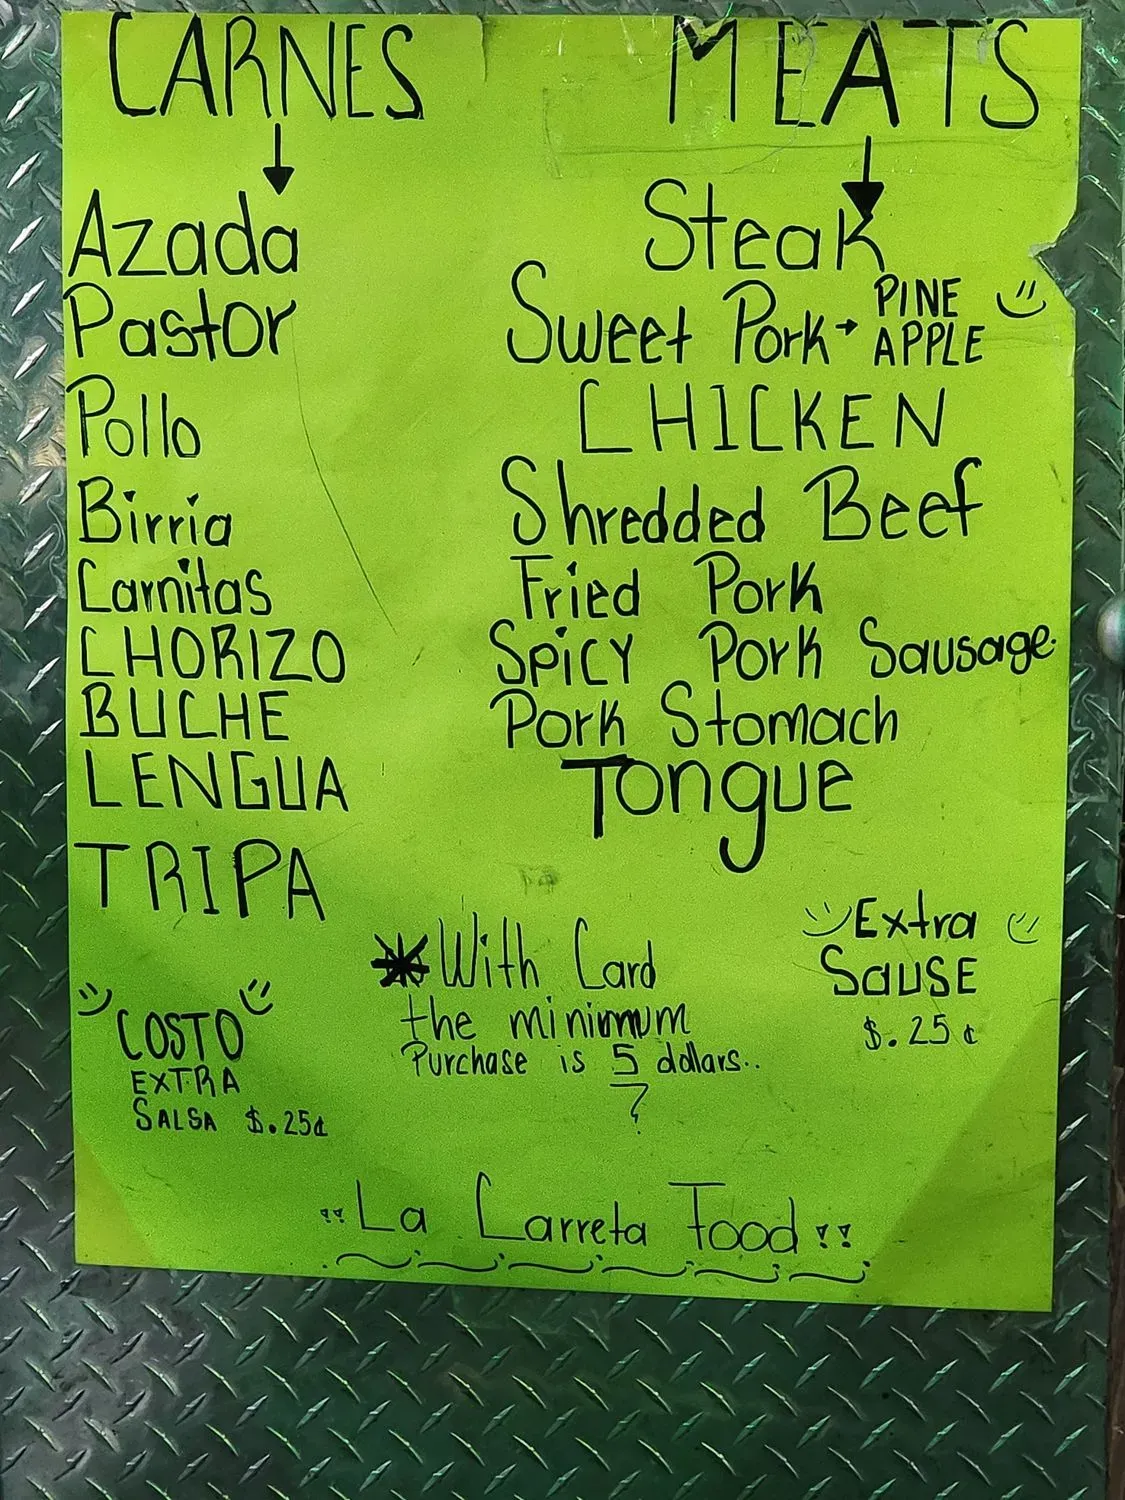 CARNES MEATS
Azada Steak
Pastor Sweet Pork → PINE APPLE
Pollo CHICKEN
Birria Shredded Beef
Carnitas Fried Pork
CHORIZO Spicy Pork Sausage.
BUCHE Pork Stomach
LENGUA Tongue
TRIPA
*With Card
the minimum
Purchase is 5 dollars..
Extra
SAUSE
$.25¢
COSTO
EXTRA
SALSA $.25¢
"La Carreta Food!!